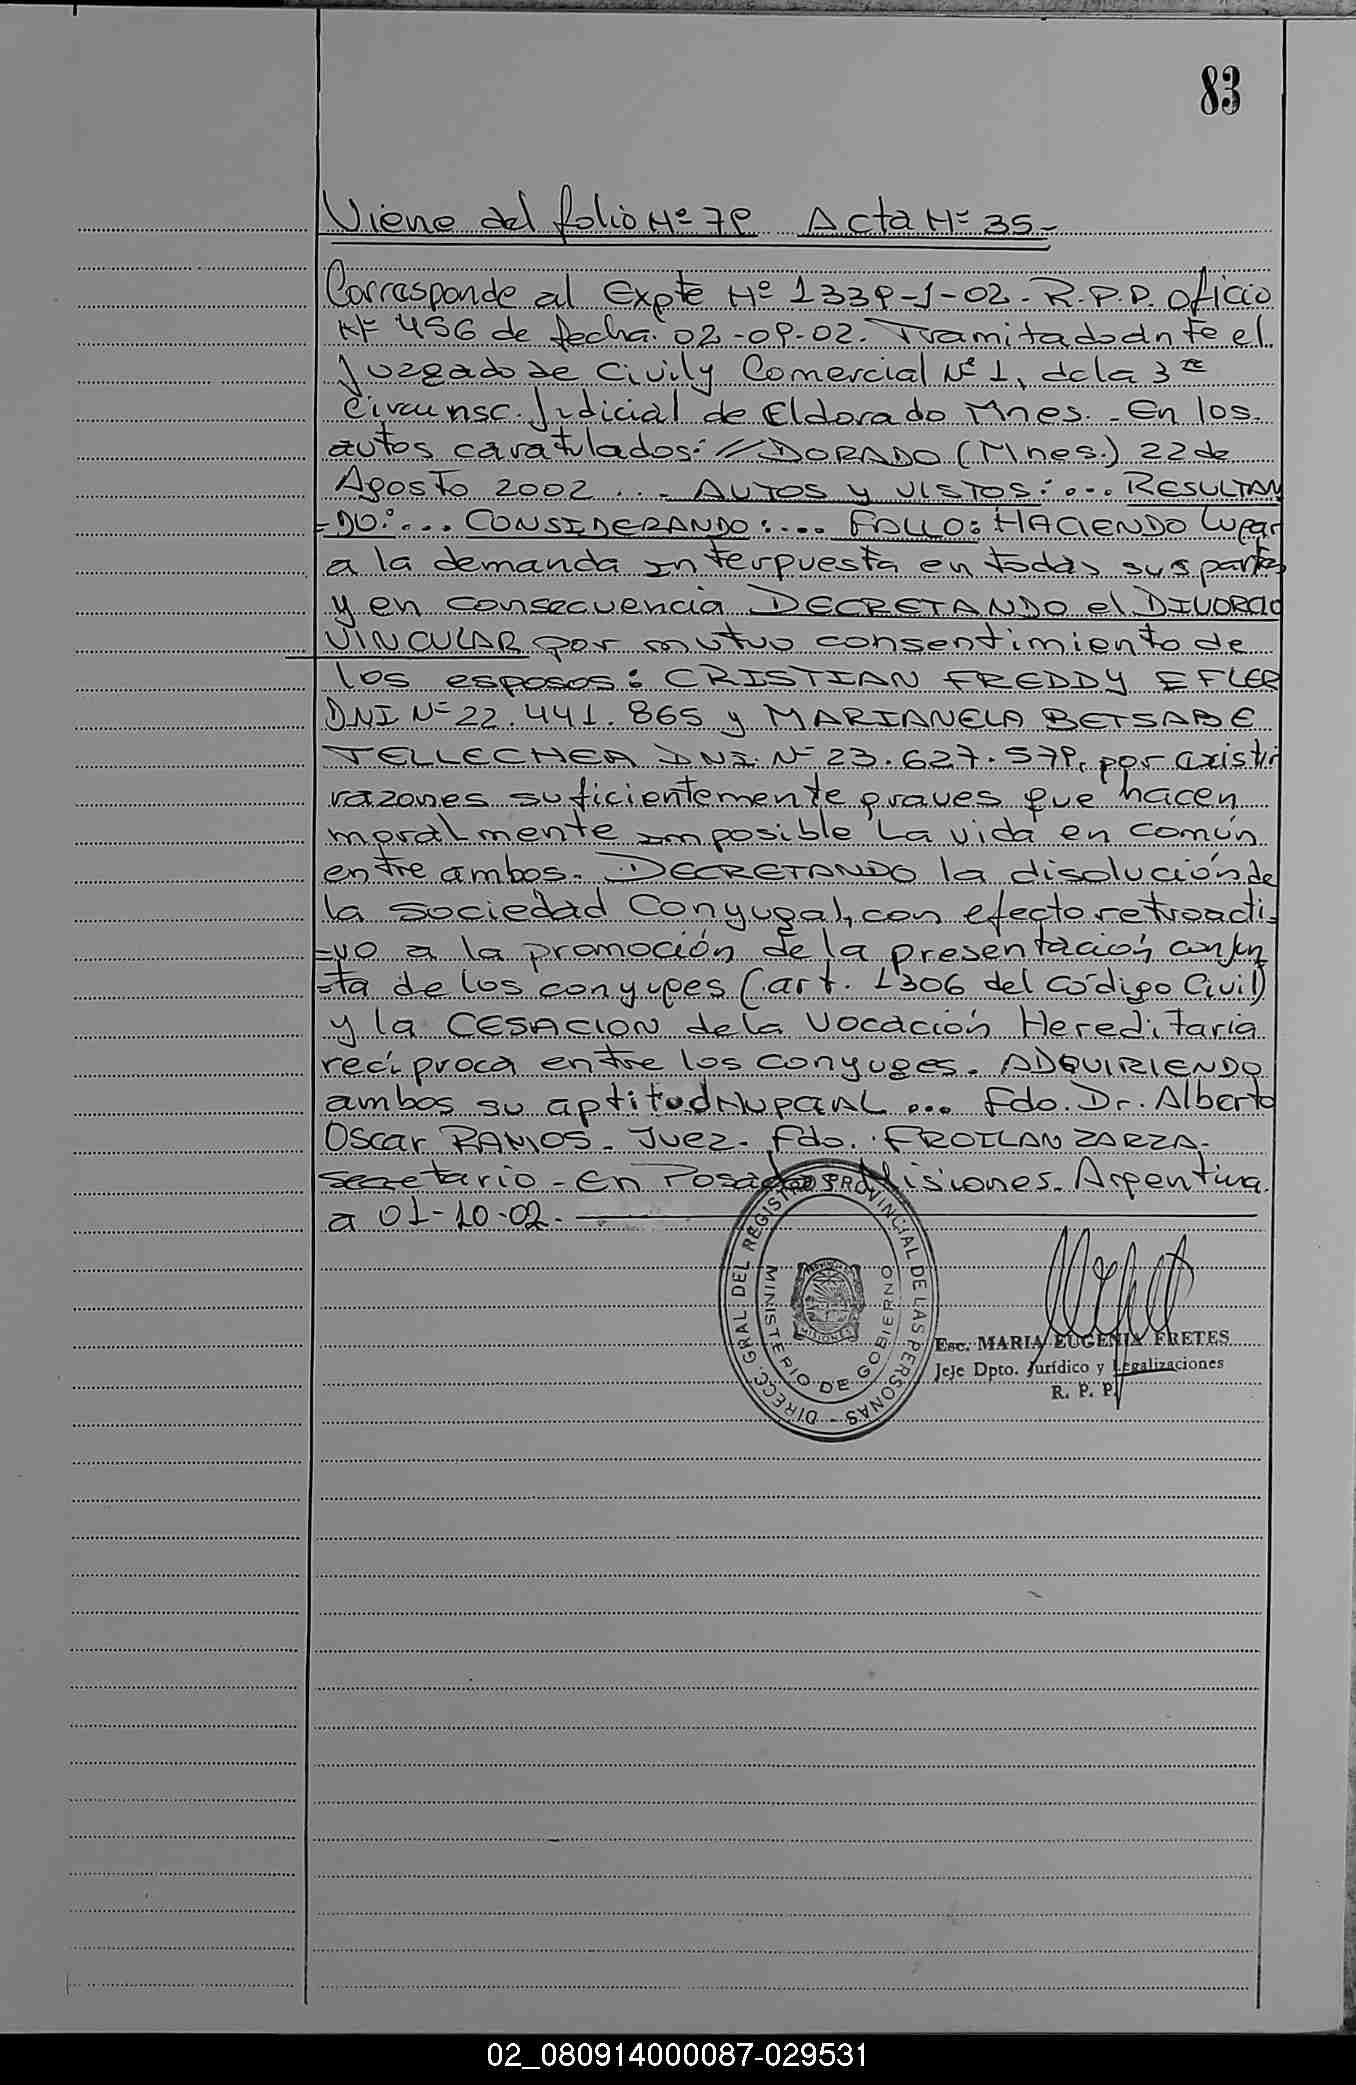 83
Viene del folio Nº 79 Acta Nº 35-
Corresponde al Expte Nº 1339-J-02. R.P.P. Oficio
Nº 456 de fecha: 02-09-02. Tramitado ante el
Juzgado de Civil y Comercial Nº 1, de la 3ra
Circunsc. Judicial de Eldorado Mnes. - En los
autos caratulados: //DORADO (Mnes.) 22 de
Agosto 2002 ... - AUTOS y VISTOS: ... RESULTAN
=DO: ... CONSIDERANDO: ... FALLO: HACIENDO lugar
a la demanda Interpuesta en todas sus partes
y en consecuencia DECRETANDO el DIVORCIO
VINCULAR por mutuo consentimiento de
los esposos: CRISTIAN FREDDY EFLER
DNI Nº 22.441.865 y MARIANELA BETSABE
TELLECHEA DNI. Nº 23.627.579, por existir
razones suficientemente graves que hacen
moralmente imposible La vida en común
entre ambos. DECRETANDO la disolución de
la Sociedad Conyugal, con efecto retroacti=
=vo a la promoción de la presentación conjun
=ta de los conyuges (art. 1306 del Código Civil)
y la CESACION de la Vocación Hereditaria
recíproca entre los conyuges. ADQUIRIENDO
ambos su aptitud Nupcial ... Fdo. Dr. Alberto
Oscar RAMOS. Juez. Fdo. FROILAN ZARZA-
Secretario - En Posadas Misiones. Argentina.
a 01-10-02.
DIRECC. GRAL. DEL REGISTRO PROVINCIAL DE LAS PERSONAS -
MINISTERIO DE GOBIERNO
MISIONES
Esc. MARIA EUGENIA FRETES
Jefe Dpto. Jurídico y Legalizaciones
R. P. P.
02_080914000087-029531